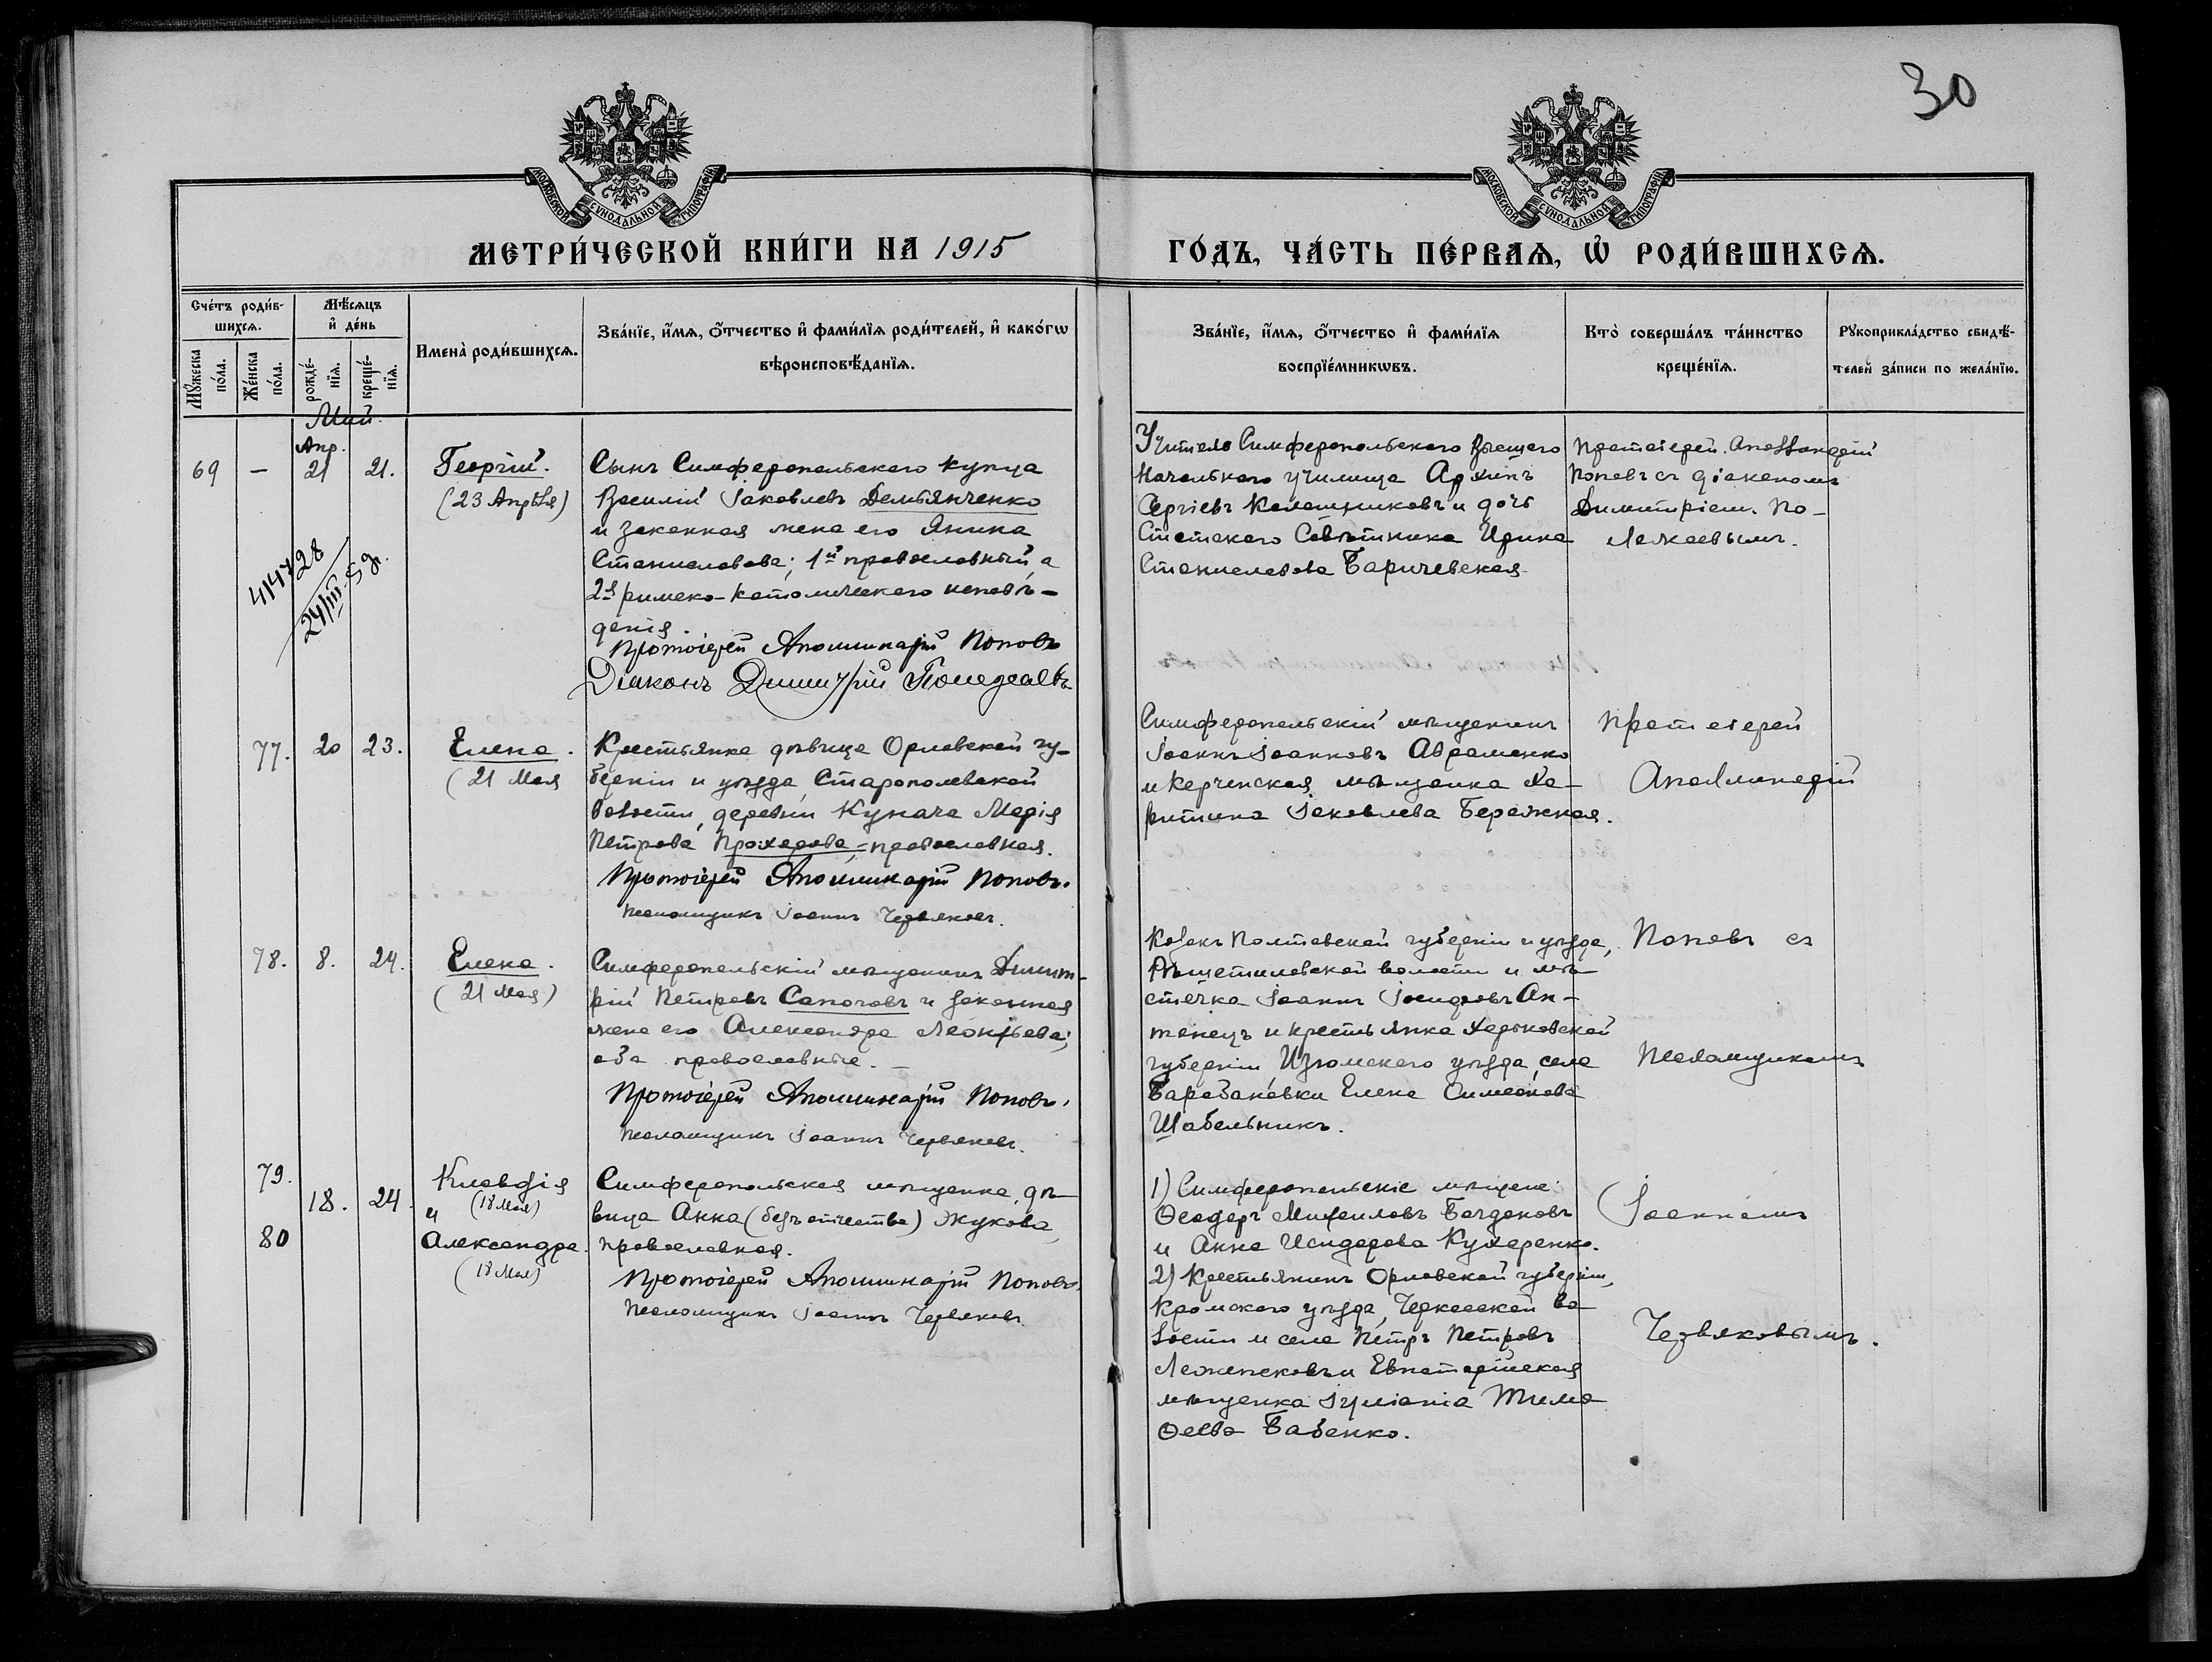 30
МОСКОВСКОЙ СѴНОДАЛЬНОЙ ТИПОГРАФІИ
МОСКОВСКОЙ СѴНОДАЛЬНОЙ ТИПОГРАФІИ
МЕТРИ́ЧЕСКОЙ КНИ́ГИ НА 1915
ГО́ДЪ, ЧА́СТЬ ПЕ́РВАѦ, Ѡ РОДИ́ВШИХСѦ.
Сче́тъ роди́в-
шихсѧ.
Мѣ́сѧцъ
и҆ де́нь
Мꙋ́жеска
по́ла.
Же́нска
по́ла.
рожде́-
нїѧ.
креще́-
нїѧ.
Имена̀ роди́вшихсѧ.
Зва́нїе, и҆́мѧ, ѻ҆́тчество и҆ фами́лїѧ роди́телей, и҆ како́гѡ
вѣроисповѣ́данїѧ.
Зва́нїе, и҆́мѧ, ѻ҆́тчество и҆ фами́лїѧ
воспрїе́мникѡвъ.
Кто̀ соверша́лъ та́инство
креще́нїѧ.
Рꙋкоприкла́дство свидѣ́-
телей за́писи по жела́нїю.
Май.
Апр.
69 — 21 21.
Георгій.
(23 Апрѣля)
414728
24/III-59.
Сынъ Симферопольскаго купца
Василій Іаковлевъ Демьянченко
и законная жена его Янина
Станиславова; 1й православный, а
2я римско-католическаго исповѣ-
данія.
Протоіерей Аполлинарій Поповъ
Діаконъ Димитрій
Учитель Симферопольскаго Высшаго
Начальнаго училища Архипъ
Сергіевъ Калашниковъ и дочь
Статскаго Совѣтника Ирина
Станиславова Баричевская.
Протоіерей Аполлинарій
Поповъ съ діакономъ
Димитріемъ По-
77. 20 23.
Елена.
(21 Мая
Крестьянка дѣвица Орловской гу-
берніи и уѣзда, Старопольской
волости, деревни Кунача Марія
Петрова Прохорова, - православная.
Протоіерей Аполлинарій Поповъ.
Псаломщикъ Іоаннъ Червяковъ.
Симферопольскій мѣщанинъ
Іоаннъ Іоанновъ Авраменко
и Керченская мѣщанка Ха-
ритина Іаковлева Бережная.
Протоіерей
Аполлинарій
78. 8. 24.
Елена.
(21 Мая)
Симферопольскій мѣщанинъ Димит-
рій Петровъ Сапоговъ и законная
жена его Александра Леонтьева;
оба православные. —
Протоіерей Аполлинарій Поповъ.
Псаломщикъ Іоаннъ Червяковъ.
Козакъ Полтавской губерніи и уѣзда,
Рѣшетиловской волости и мѣ-
стечка Іоаннъ Исидоровъ Ан-
тонецъ и крестьянка Харьковской
губерніи Изюмскаго уѣзда, села
Барабановки Елена Симеонова
Шабельникъ.
Поповъ съ
Псаломщикомъ
79.
18. 24.
80
Клавдія
(18 Мая)
и
Александра.
(18 Мая)
Симферопольская мѣщанка, дѣ-
вица Анна (безъ отчества) Жукова,
православная.
Протоіерей Аполлинарій Поповъ.
Псаломщикъ Іоаннъ Червяковъ.
1) Симферопольскіе мѣщане:
Ѳеодоръ Михаиловъ Богдановъ
и Анна Исидорова Кухаренко.
2) Крестьянинъ Орловской губерніи,
Кромскаго уѣзда, Черкасской во-
лости и села Петръ Петровъ
и Евпаторійская
мѣщанка Іуліанія Тимо
ѳеева Бабенко.
Іоанномъ
Червяковымъ.